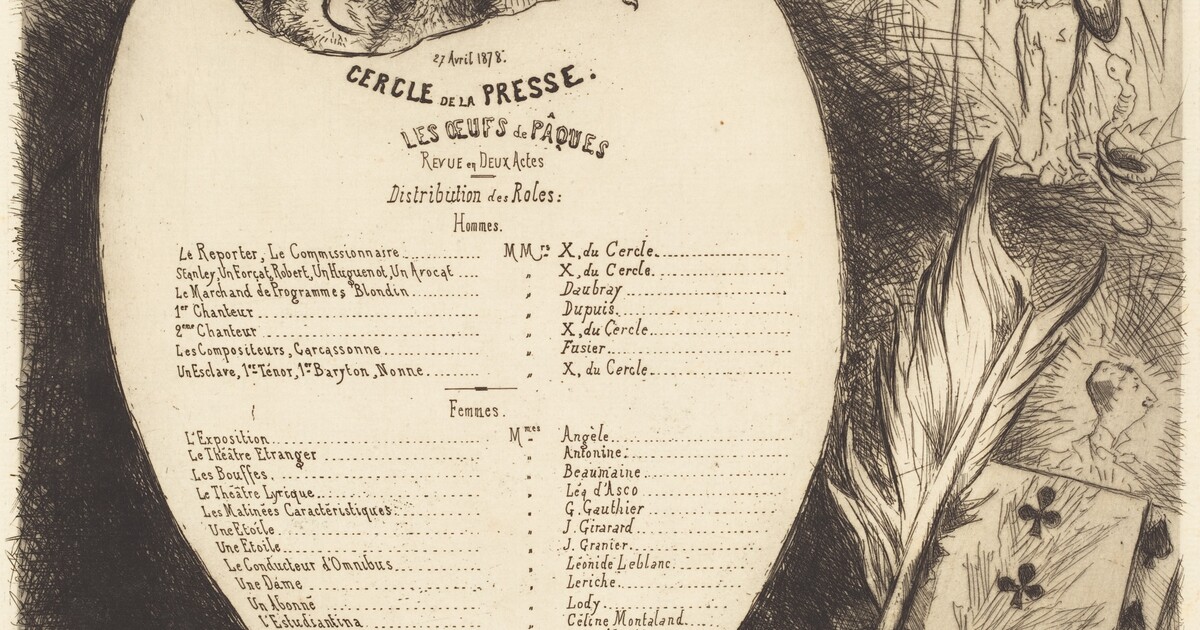 27 Avril 1878.
CERCLE DE LA PRESSE.
LES ŒUFS de PÂQUES
REVUE en DEUX Actes
Distribution des Roles:
Hommes.
Le Reporter, Le Commissionnaire MMrs X, du Cercle
Stanley, Un Forçat, Robert, Un Huguenot, Un Avocat „ X, du Cercle
Le Marchand de Programmes, Blondin „ Daubray
1er Chanteur „ Dupuis
2eme Chanteur „ X, du Cercle
Les Compositeurs, Carcassonne „ Fusier
Un Esclave, 1er Ténor, 1er Baryton, Nonne „ X, du Cercle
Femmes.
L'Exposition Mmes Angèle
Le Théâtre Etranger „ Antonine
Les Bouffes „ Beaumaine
Le Théâtre Lyrique „ Léa d'Asco
Les Matinées Caractéristiques „ G. Gauthier
Une Etoile „ J. Girarard
Une Etoile „ J. Granier
Le Conducteur d'Omnibus „ Léonide Leblanc
Une Dame „ Leriche
Un Abonné „ Lody
L'Estudiantina „ Céline Montaland